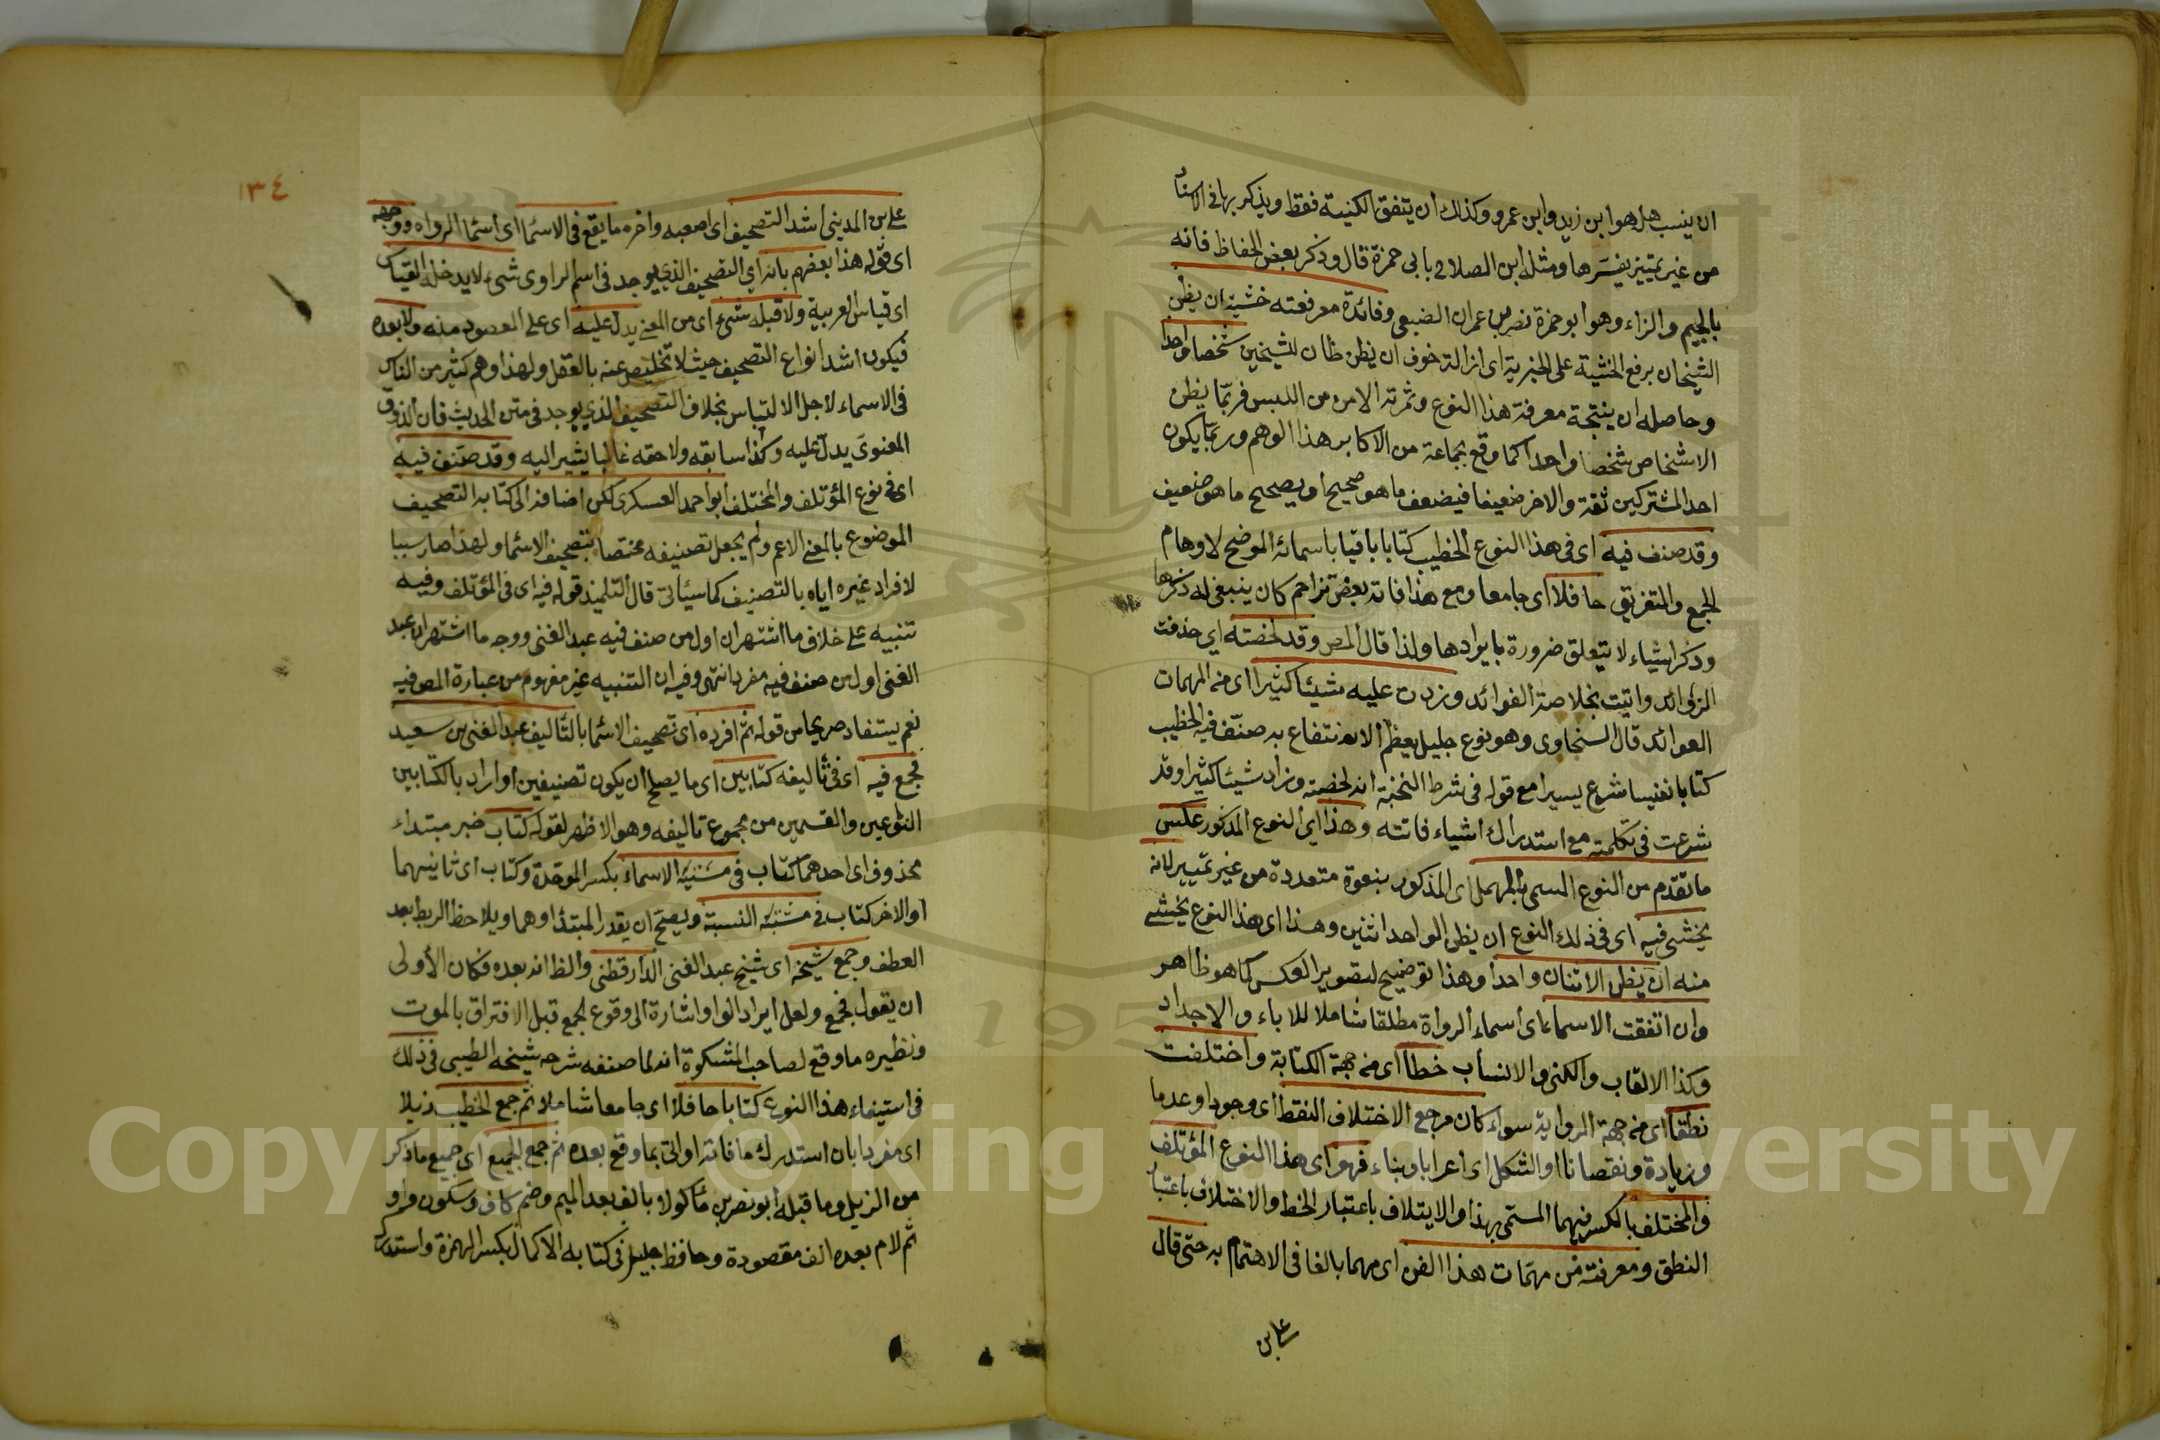 ان ينسب هل هو ابن زيد وابن عمرو وكذلك ان يتفق الكنية فقط ويذكر بها في الاسناد
من غير تمييز يفسرها ومثله ابن الصلاح بابي حمزة قال وذكر بعض الحفاظ فانه
بالجيم والراء وهو ابو جمرة نصر بن عمران الضبعي وفائدة معرفته خشية ان يظن
الشيخان برفع الخشية على الخبرية اى ازالة خوف ان يظن ظان الشيخين شخصا واحدا
وحاصله ان نتيجة معرفة هذا النوع وثمرته الامن من اللبس فربما يظن
الاشخاص شخصا واحدا كما وقع لجماعة من الاكابر هذا الوهم وربما يكون
احد المشتركين ثقة والاخر ضعيفا فيضعف ما هو صحيح او يصحح ما هو ضعيف
وقد صنف فيه اى في هذا النوع الخطيب كتابا باسمائه الموضح لاوهام
الجمع والتفريق حافلا اى جامعا ومع هذا فاته بعض تراجم كان ينبغي له ذكرها
وذكر اشياء لا يتعلق ضرورة بايرادها ولذا قال المص وقد لخصته اي حذفت
الزوائد واتيت بخلاصة الفوائد وزدت عليه شيئا كثيرا اى من المهمات
العوائد قال السخاوى وهو نوع جليل يعظم الانتفاع به صنف فيه الخطيب
كتابا نفيسا شرع يسيرا مع قوله في شرط النخبة انه لخصته وزاد شيئا كثيرا وقد
شرعت في تكلمته مع استدراك اشياء فاتته وهذا اي النوع المذكور عكس
ما تقدم من النوع المسمى بالمهمل اى المذكور بنعوة متعددة من غير تمييز لانه
يخشى فيه اى في ذلك النوع ان يظن الواحد اثنين وهذا اى هذا النوع يخشى
منه ان يظن الاثنان واحدا وهذا توضيح لتصوير العكس كما هو ظاهر
وان اتفقت الاسماء اى اسماء الرواة مطلقا شاملا للاباء والاجداد
وكذا الالقاب والكنى والانساب خطا اى من جهة الكتابة واختلفت
نطقا اى من جهة الرواية سواء كان مرجع الاختلاف النقط اى وجودا وعدما
وزيادة ونقصانا او الشكل اى اعرابا وبناء فهو اى هذا النوع المؤتلف
والمختلف بالكسر فيهما المسمى بهذا والايتلاف باعتبار الخط والاختلاف باعتبار
النطق ومعرفته من مهمات هذا الفن اى مهما بالغا في الاهتمام به حتى قال
على بن
١٣٤
على بن المديني اشد التصحيف اى اصعبه واخره ما يقع في الاسما اى اسما الرواه ووجهه
اى قوله هذا بعضهم بانه اي التصحيف الذي يوجد في اسم الراوى شيء لا يدخله القياس
اى قياس العربية ولا قبله شئ اى من المعنى يدل عليه اى على المقصود منه ولا بعده
فيكون اشد انواع التصحيف حيث لا تخليص عنه بالعقل ولهذا وهم كثير من الناس
في الاسماء لاجل الالتباس بخلاف التصحيف الذي يوجد في متن الحديث فان الذوق
المعنوى يدل عليه وكذا سابقه ولاحقه غالبا يشير اليه وقد صنف فيه
اى في نوع المؤتلف والمختلف ابو احمد العسكرى لكن اضافه الى كتابه التصحيف
الموضوع بالمعنى الاعم ولم يجعل تصنيفه مختصا بتصحيف الاسما ولهذا صار سببا
لافراد غيره اياه بالتصنيف كما سيئاتى قال التلميذ قوله فيه اى في المؤتلف وفيه
تنبيه على خلاف ما اشتهر ان اول من صنف فيه عبد الغنى ووجه ما اشتهر ان عبد
الغنى اول من صنف فيه مفردا انتهى وفيه ان التنبيه غير مفهوم من عبارة المص فيه
نعم يستفاد صريحا من قوله ثم افرده اى تصحيف الاسما بالتأليف عبد الغنى بن سعيد
فجمع فيه اى في تأليفه كتابين اى ما يصلح ان يكون تصنيفين او اراد بالكتابين
النوعين والقسمين من مجموع تاليفه وهو الاظهر لقوله كتاب خبر مبتداء
محذوف اى احدهما كتاب في مشتبه الاسماء بكسر الموحدة وكتاب اى ثانيهما
او الاخر كتاب في مشتبه النسبة ويصح ان يقدر المبتدا وهما ويلاحظ الربط بعد
العطف وجمع شيخه اى شيخ عبد الغنى الدارقطنى والظ انه بعده فكان الأولى
ان يقول فجمع ولعل ايراد الواو اشارة الى وقوع الجمع قبل الافتراق بالموت
ونظيره ما وقع لصاحب المشكوة انه لما صنفه شرحه شيخه الطيبى في ذلك
في استيفاء هذا النوع كتابا حافلا اى جامعا شاملا ثم جمع الخطيب ذيلا
اى مفردا بان استدرك ما فاته او اتى بما وقع بعده ثم جمع الجميع اى جميع ما ذكر
من الذيل وما قبله ابو نصر بن ماكولا بالف بعد الميم وضم كاف وسكون واو
ثم لام بعده الف مقصودة وحافظ جليل في كتابه الاكمال بكسر الهمزة واستدرك
Copyright © King Saud University
195